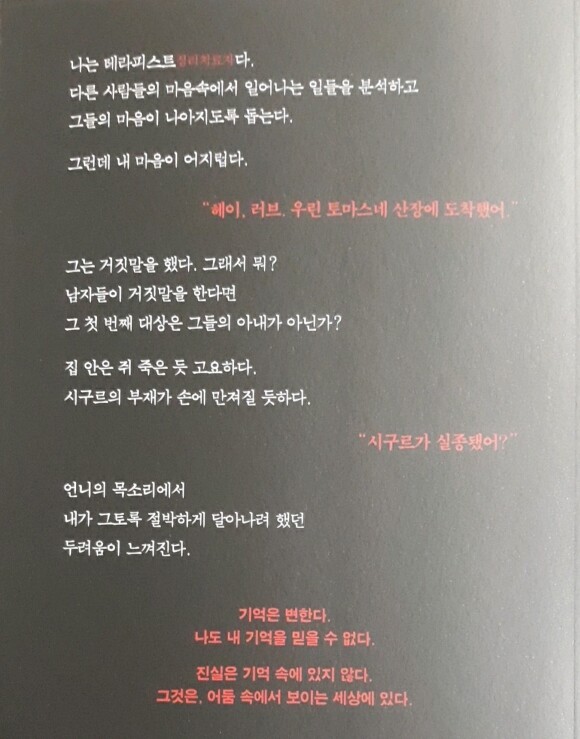 나는 테라피스트심리치료자다.
다른 사람들의 마음속에서 일어나는 일들을 분석하고
그들의 마음이 나아지도록 돕는다.
그런데 내 마음이 어지럽다.
“헤이, 러브. 우린 토마스네 산장에 도착했어.”
그는 거짓말을 했다. 그래서 뭐?
남자들이 거짓말을 한다면
그 첫 번째 대상은 그들의 아내가 아닌가?
집 안은 쥐 죽은 듯 고요하다.
시구르의 부재가 손에 만져질 듯하다.
“시구르가 실종됐어?”
언니의 목소리에서
내가 그토록 절박하게 달아나려 했던
두려움이 느껴진다.
기억은 변한다.
나도 내 기억을 믿을 수 없다.
진실은 기억 속에 있지 않다.
그것은, 어둠 속에서 보이는 세상에 있다.